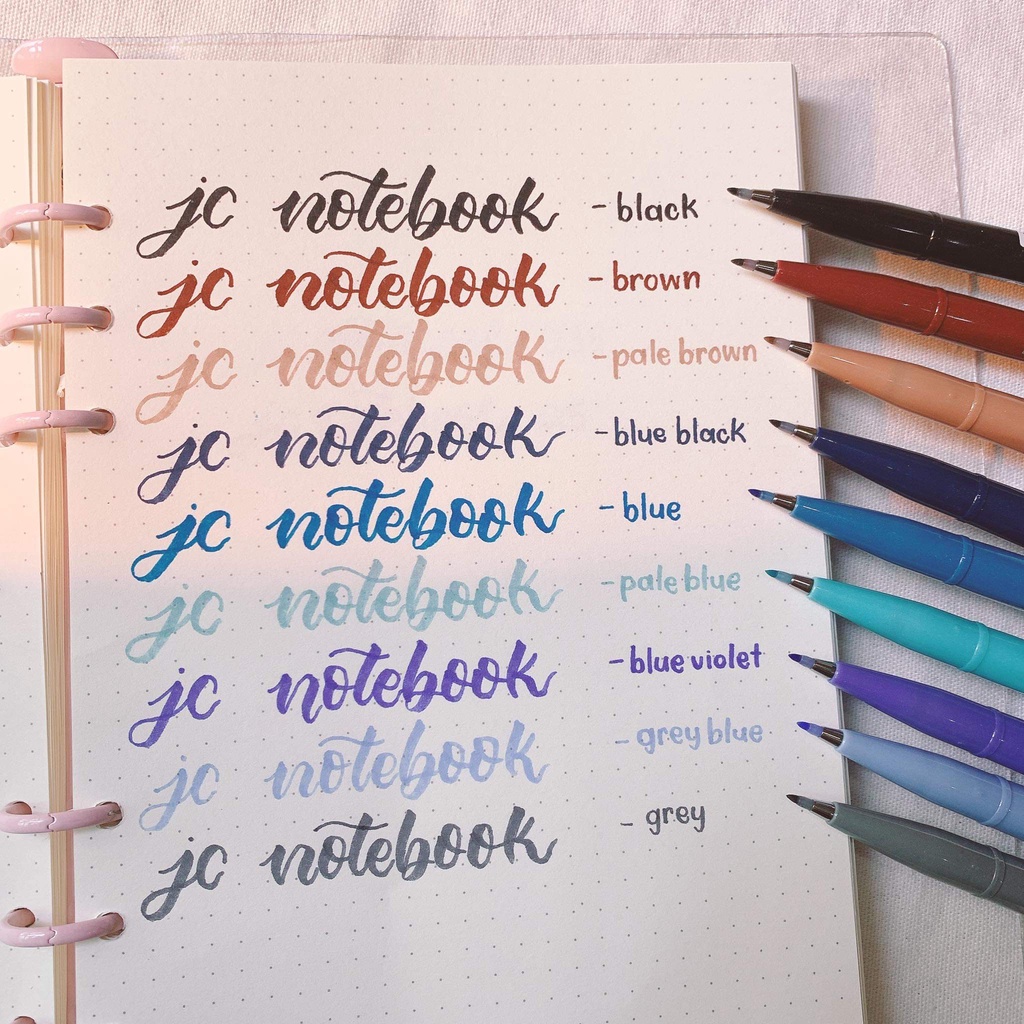 jc notebook - black
jc notebook - brown
jc notebook - pale brown
jc notebook - blue black
jc notebook - blue
jc notebook - pale blue
jc notebook - blue violet
jc notebook - grey blue
jc notebook - grey